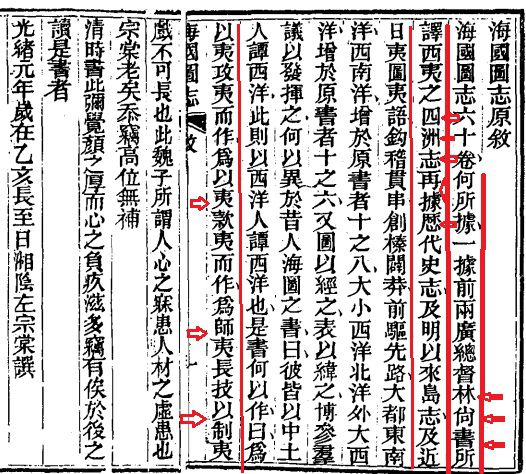 海國圖志原敘
海國圖志六十卷何所據一據前兩廣總督林尚書所
譯西夷之四洲志再據歷代史志及明以來島志及近
日夷圖夷語鉤稽貫串創榛闢莽前驅先路大都東南
洋西南洋增於原書者十之八大小西洋北洋外大西
洋增於原書者十之六又圖以經之表以緯之博參羣
議以發揮之何以異於昔人海圖之書曰彼皆以中土
人譚西洋此則以西洋人譚西洋也是書何以作曰爲
以夷攻夷而作爲以夷款夷而作爲師夷長技以制夷
海國圖志
戲不可長也此魏子所謂人心之寐患人材之虛患也
宗棠老矣忝竊高位無補
清時書此彌覺顏之厚而心之負疚滋多竊有俟於後之
讀是書者
光緒元年歲在乙亥長至日湘陰左宗棠譔